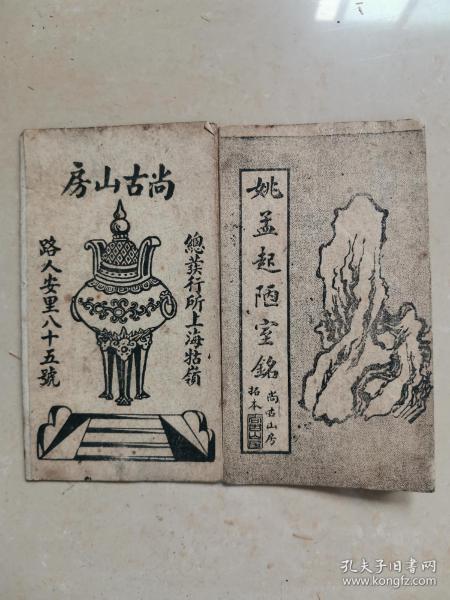 尚古山房
總發行所上海牯嶺
路人安里八十五號
姚孟起陋室銘
尚古山房
拓本
孔夫子旧书网
www.kongfz.com